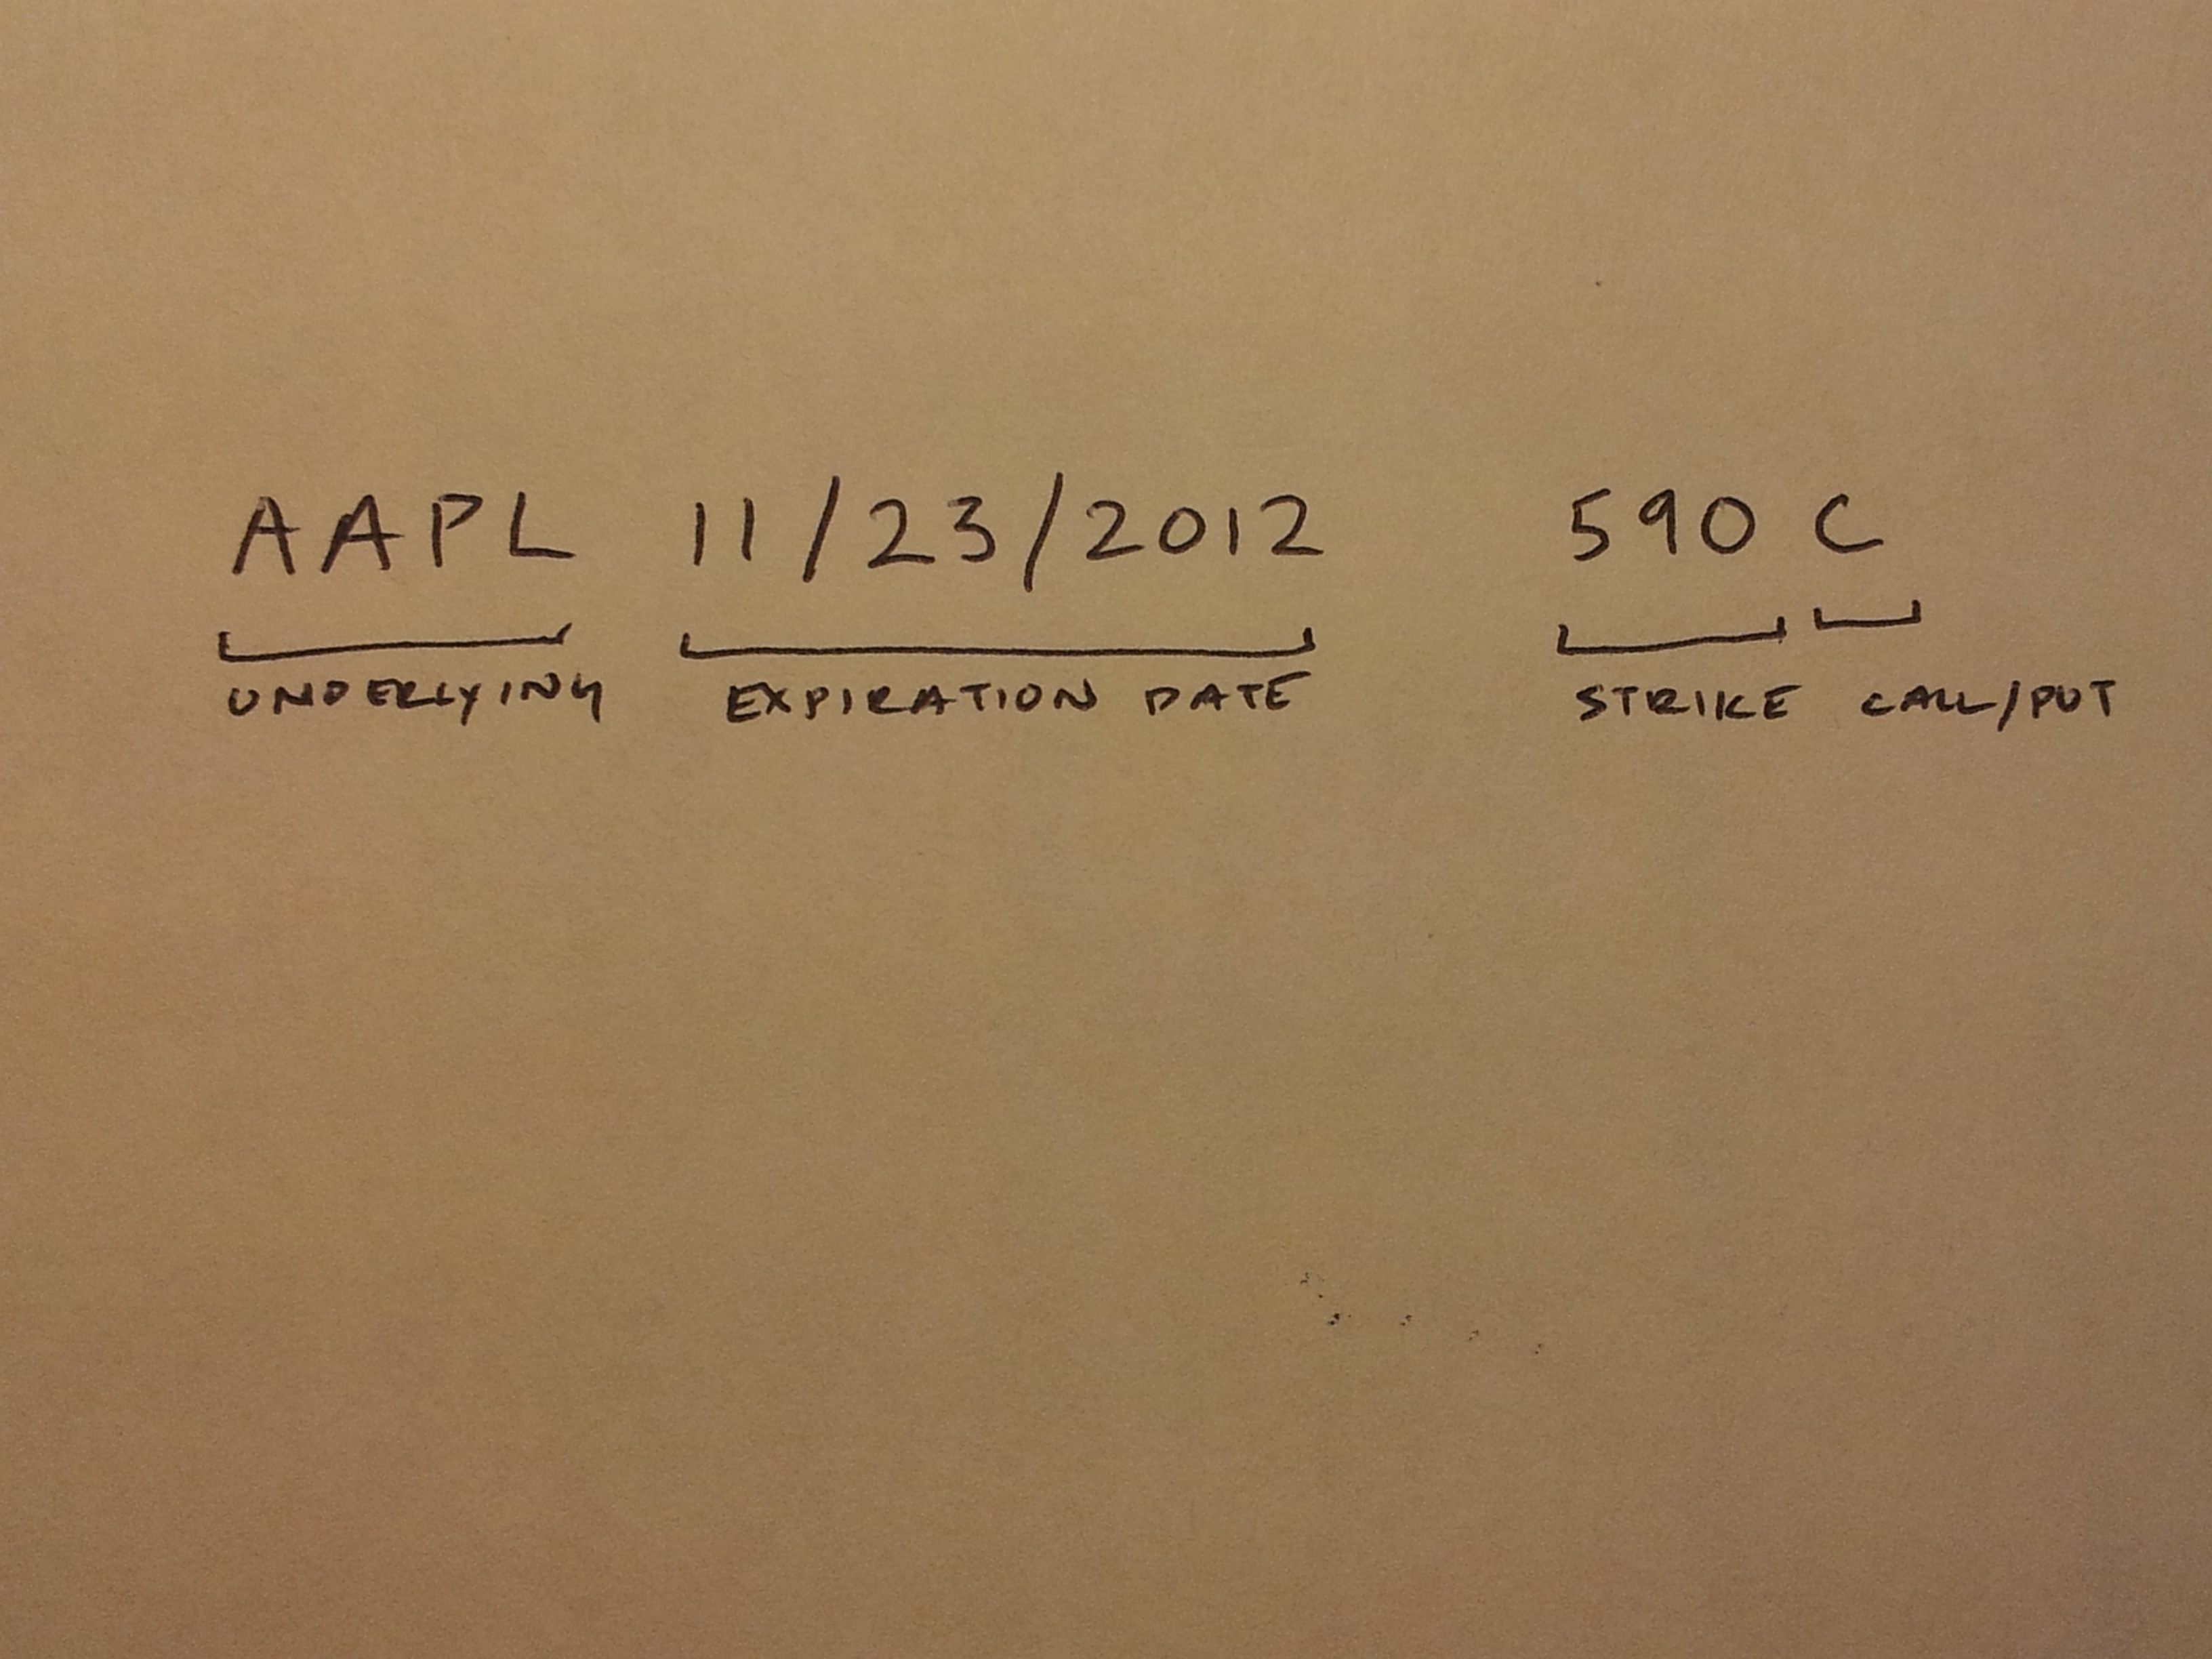 AAPL 11/23/2012 590 C
UNDERLYING EXPIRATION DATE STRIKE CALL/PUT